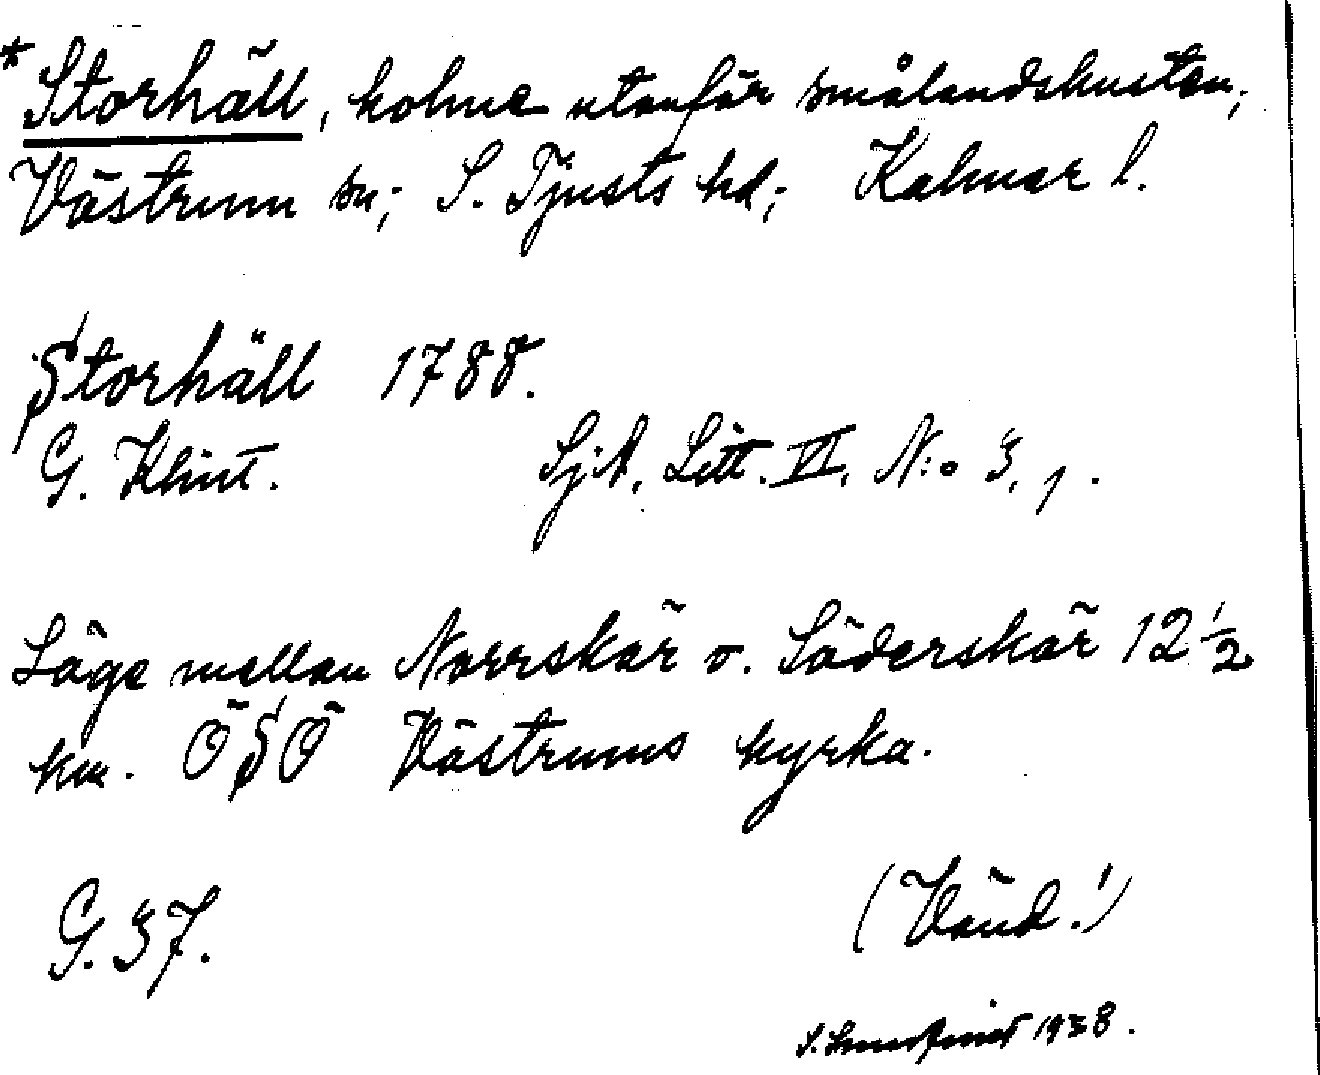 * Storhäll, holme utanför smålandskusten;
Västrum sn; S. Tjusts hd; Kalmar l.
Storhäll 1788.
G. Klint. SjA, Litt. VI, N:o 3, 1.
Läge mellan Norrskär o. Söderskär 12 1/2
km. ÖSÖ Västrums kyrka.
G. 37.
(Vänd!)
1938.